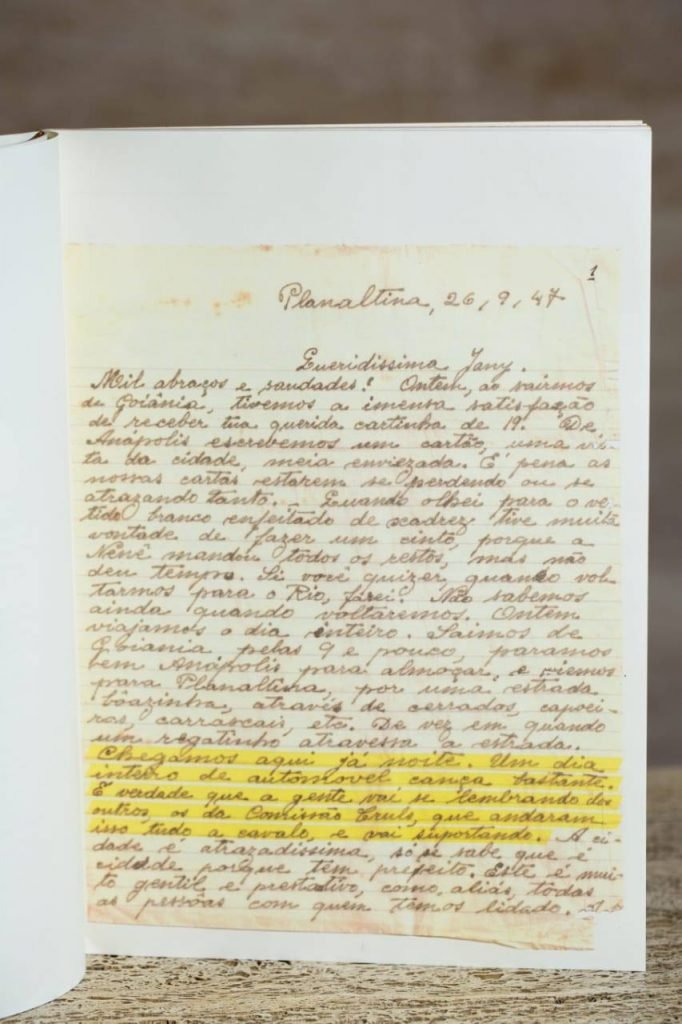 1
Planaltina, 26/9/47
Queridissima Jany.
Mil abraços e saudades! Ontem, ao sairmos
de Goiânia, tivemos a imensa satisfação
de receber tua querida cartinha de 19. De
Anápolis escrevemos um cartão, uma vis-
ta da cidade, meia enviezada. É pena as
nossas cartas estarem se perdendo ou se
atrazando tanto. – Quando olhei para o ves-
tido branco enfeitado de xadrez tive muita
vontade de fazer um cinto, porque a
Nenê mandou todos os restos, mas não
deu tempo. Si você quizer, quando vol-
tarmos para o Rio, farei! Não sabemos
ainda quando voltaremos. Ontem
viajamos o dia inteiro. Saimos de
Goiania pelas 9 e pouco, paramos
em Anápolis para almoçar, e viemos
para Planaltina, por uma estrada
bôazinha, através de cerrados, capoei-
ras, carrascais, etc. De vez em quando
um regatinho atravessa a estrada.
Chegamos aqui já noite. Um dia
inteiro de automovel cança bastante.
É verdade que a gente vai se lembrando dos
outros, os da Comissão Cruls, que andaram
isso tudo a cavalo, e vai suportando. A ci-
dade é atrazadissima, só se sabe que é
cidade porque tem prefeito. Este é mui-
to gentil e prestativo, como, aliás, todas
as pessôas com quem temos lidado.